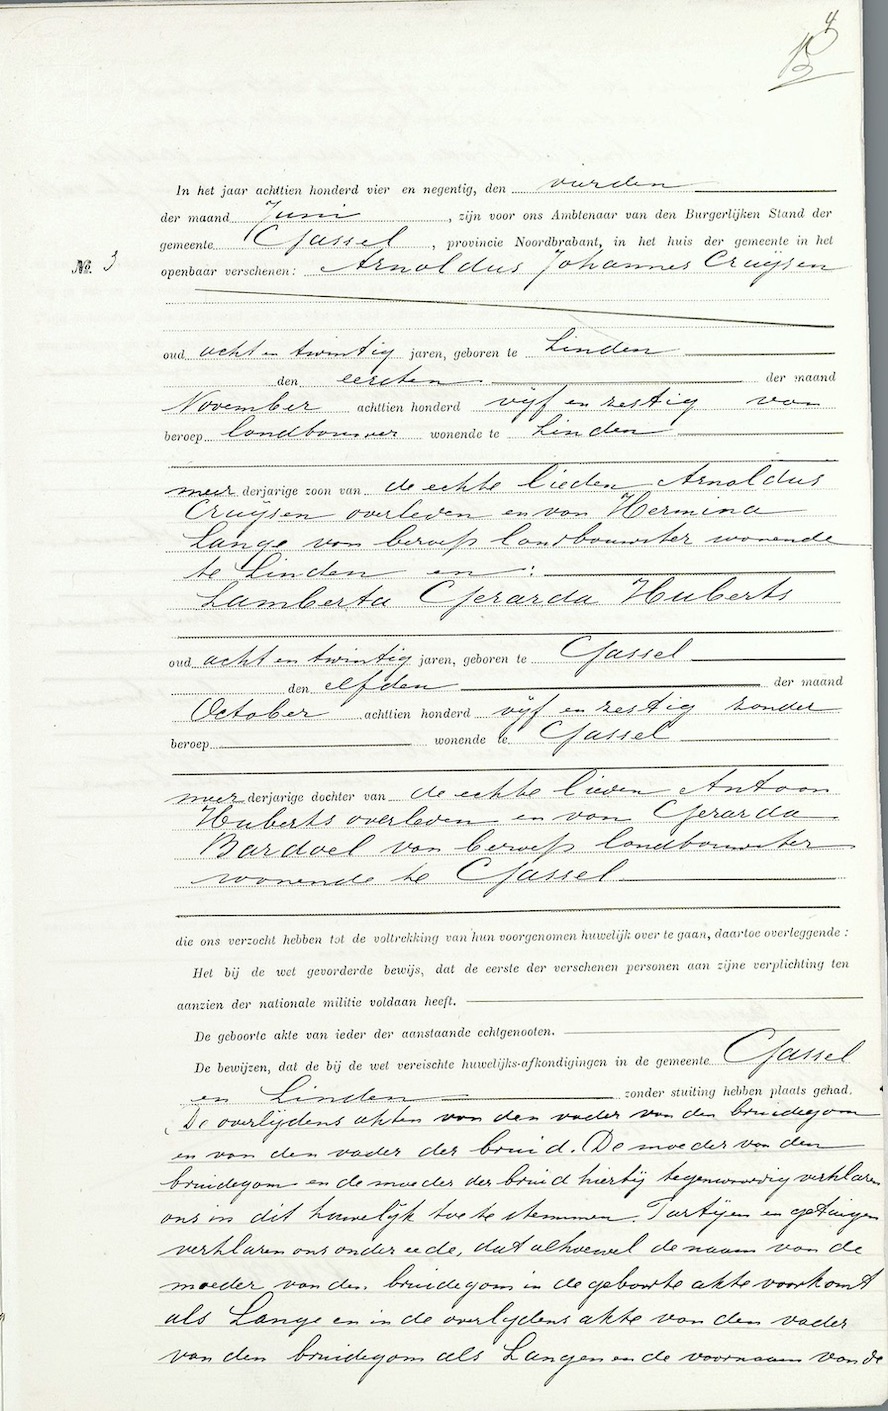 4
In het jaar achttien honderd vier en negentig, den vierden
der maand Juni, zijn voor ons Ambtenaar van den Burgerlijken Stand der
gemeente Gassel, provincie Noordbrabant, in het huis der gemeente in het
No. 3 openbaar verschenen: Arnoldus Johannes Cruÿsen
oud acht en twintig jaren, geboren te Linden
den eersten der maand
November achttien honderd vijf en zestig van
beroep landbouwer wonende te Linden
meer derjarige zoon van de echte lieden Arnoldus
Cruÿsen overleden en van Hermina
Lange van beroep landbouwster wonende
te Linden en :
Lamberta Gerarda Huberts
oud acht en twintig jaren, geboren te Gassel
den elfden der maand
October achttien honderd vijf en zestig zonder
beroep wonende te Gassel
meer derjarige dochter van de echte lieden Antoon
Huberts overleden en van Gerarda
Bardoel van beroep landbouwster
wonende te Gassel
die ons verzocht hebben tot de voltrekking van hun voorgenomen huwelijk over te gaan, daartoe overleggende :
Het bij de wet gevorderde bewijs, dat de eerste der verschenen personen aan zijne verplichting ten
aanzien der nationale militie voldaan heeft.
De geboorte akte van ieder der aanstaande echtgenooten.
De bewijzen, dat de bij de wet vereischte huwelijks-afkondigingen in de gemeente Gassel
en Linden zonder stuiting hebben plaats gehad.
De overlijdens akten van den vader van den bruidegom
en van den vader der bruid. De moeder van den
bruidegom en de moeder der bruid hierbij tegenwoordig verklaren
ons in dit huwelijk toe te stemmen. Partijen en getuigen
verklaren ons onder eede, dat alhoewel de naam van de
moeder van den bruidegom in de geboorte akte voorkomt
als Lange en in de overlijdens akte van den vader
van den bruidegom als Langen en de voornaam van de